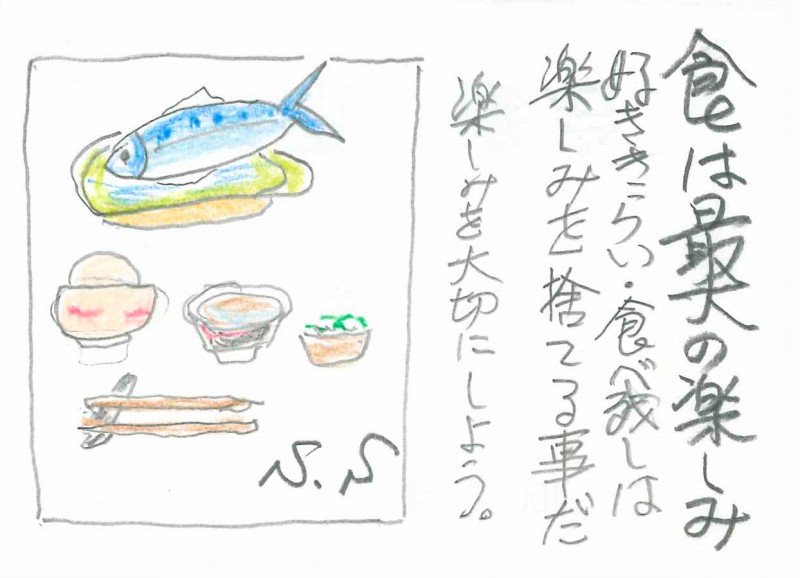 食は最大の楽しみ
好ききらい・食べ残しは
楽しみを捨てる事だ
楽しみを大切にしよう。
S.S